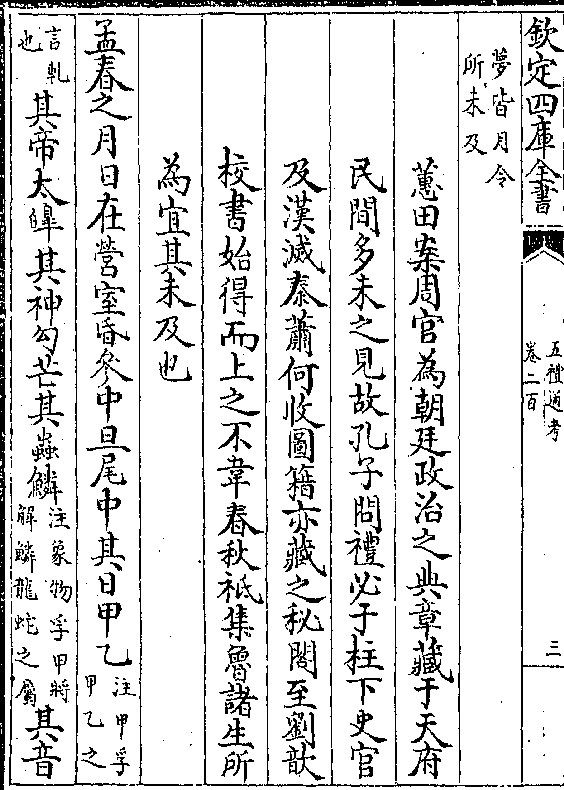 欽定四庫全書
五禮通考
卷二百
三
夢皆月令
所未及
蕙田案周官為朝廷政治之典章藏于天府
民間多未之見故孔子問禮必于柱下史官
及漢滅秦蕭何收圖籍亦藏之秘閣至劉歆
校書始得而上之不韋春秋祗集魯諸生所
為宜其未及也
孟春之月日在營室昏參中旦尾中其日甲乙注甲孚
甲乙之
言軋
也其帝太皥其神勾芒其蟲鱗注象物孚甲將
解鱗龍蛇之屬其音